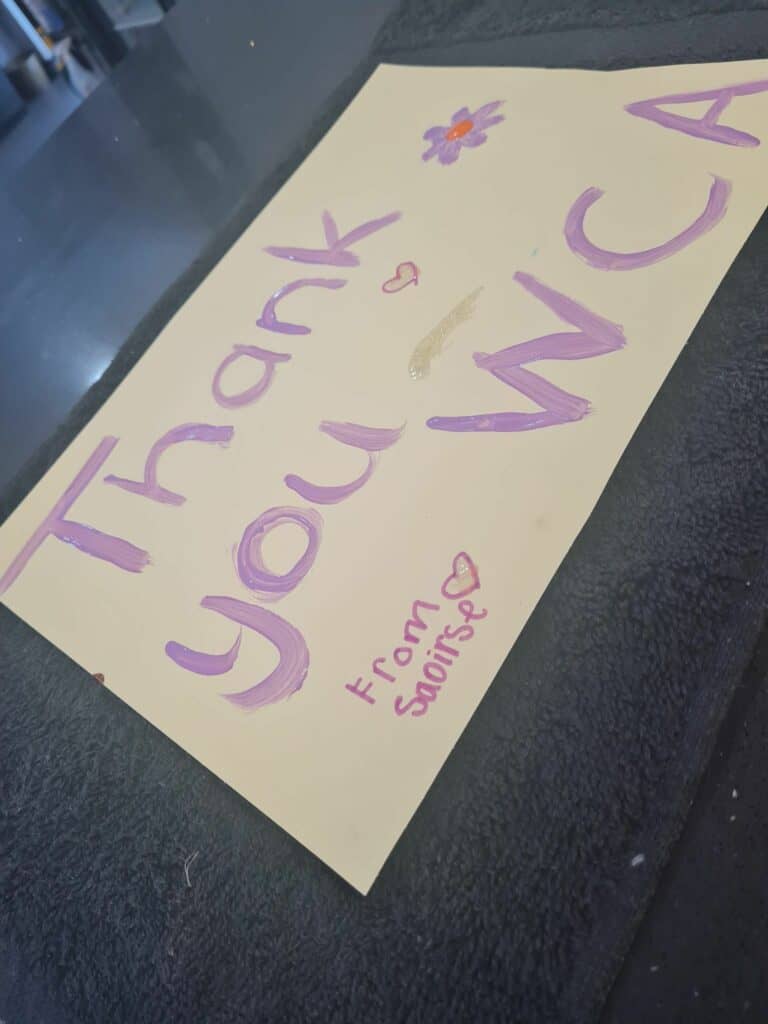 Thank
you WCA
From
Saoirse